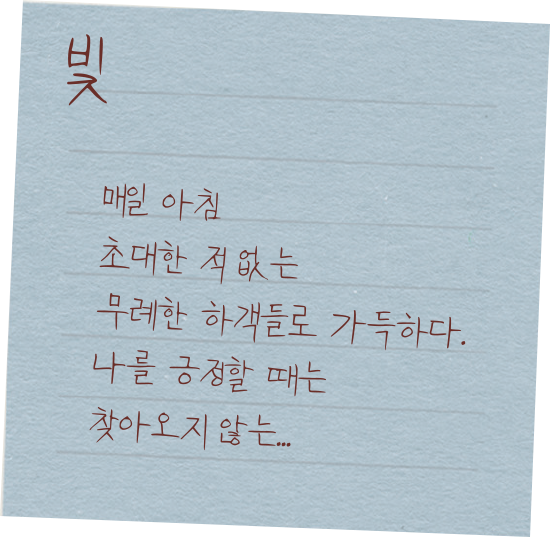 빛
매일 아침
초대한 적없는
무례한 하객들로 가득하다.
나를 긍정할 때는
찾아오지않는...